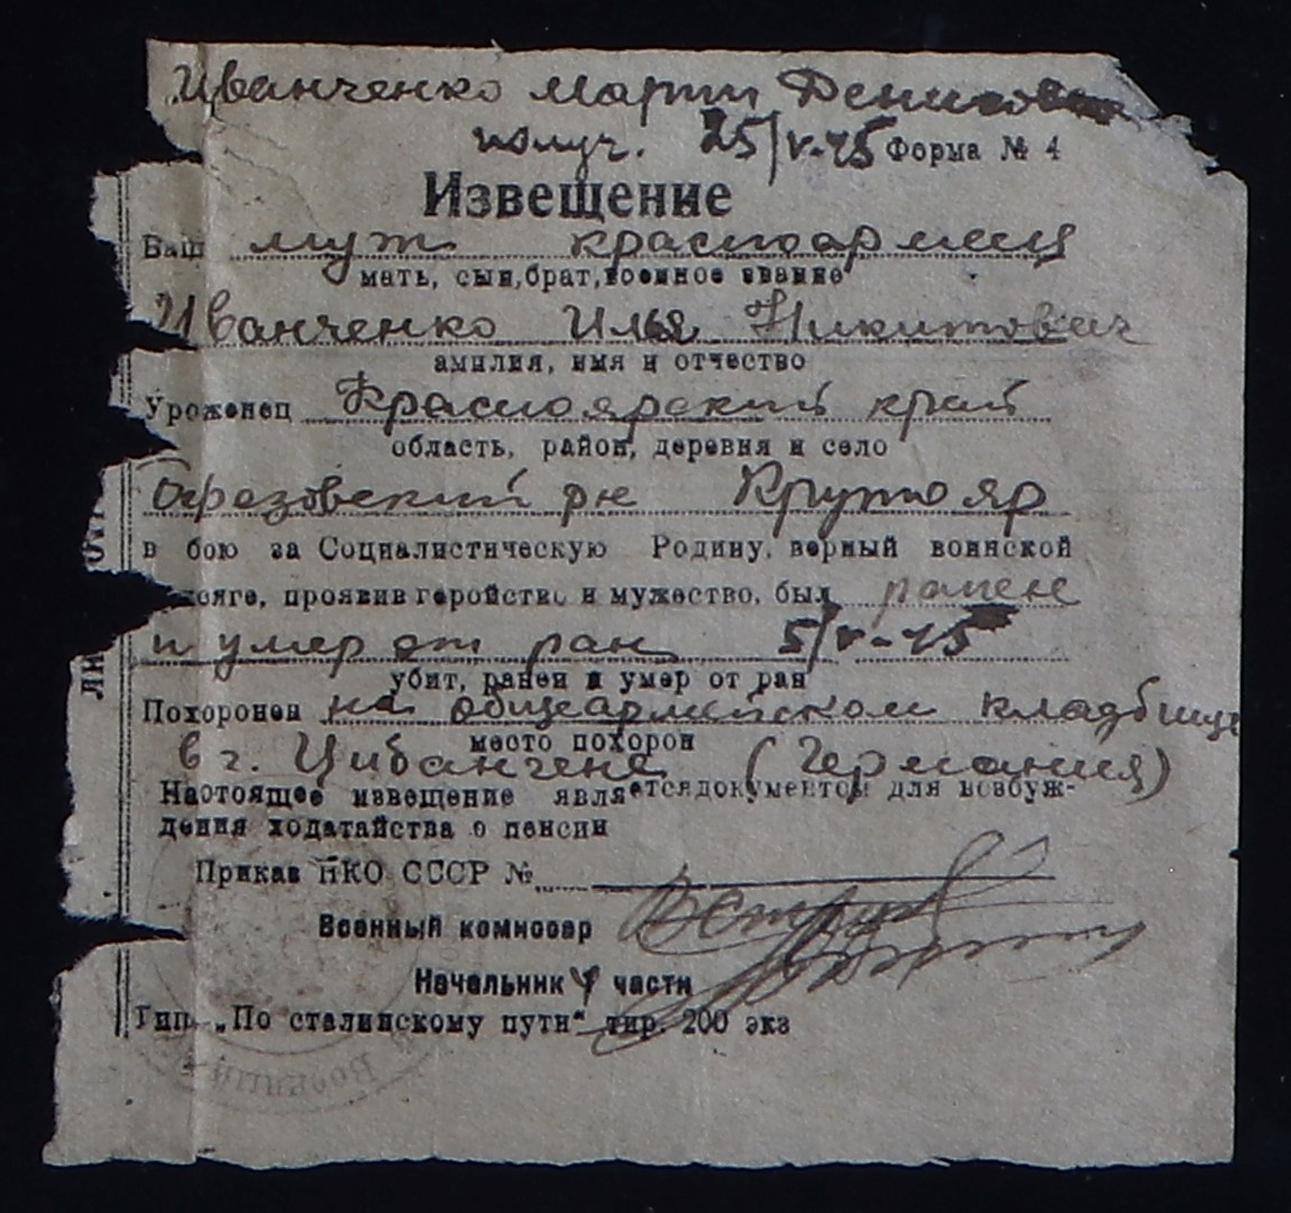 Иванченко Марти Денисов
получ. 25/V-45 Форма № 4
Извещение
Ваш муж красноармеец
мать, сын, брат, военное звание
Иванченко Илья Никитович
амилия, имя и отчество
Уроженец Красноярский край
область, район, деревня и село
Березовский рн Крутояр
в бою за Социалистическую Родину, верный воинской
исяге, проявив геройство и мужество, был ранен
и умер от ран 5/V-45
убит, ранен и умер от ран
Похоронен на общеармейском кладбище
место похорон
в г. Цибанчене (Германия)
Настоящее извещение является документом для возбуж-
дения ходатайства о пенсии
Приказ НКО СССР №
Военный комиссар
Начальник 4 части
Тип. „По сталинскому пути“ тир. 200 экз